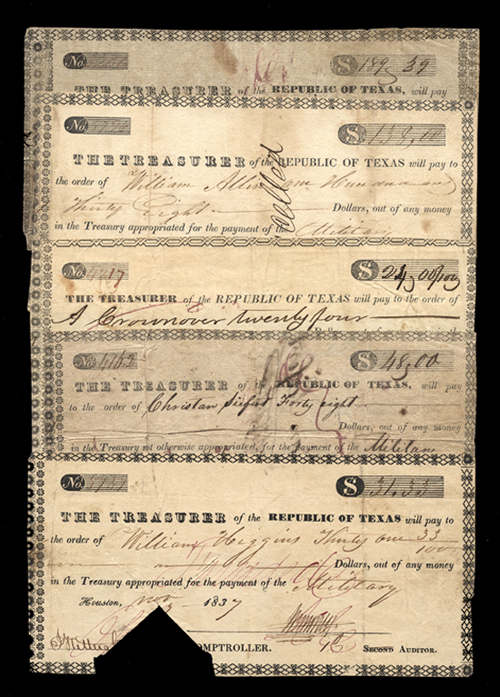 No.
$ 189,39
THE TREASURER of the REPUBLIC OF TEXAS, will pay
No.
$ 138,00
THE TREASURER of the REPUBLIC OF TEXAS will pay to
the order of William one Hundred and
Thirty Eight Dollars, out of any money
in the Treasury appropriated for the payment of the Military
No. 17
$ 24,00/100
THE TREASURER of the REPUBLIC OF TEXAS will pay to the order of
A Crownover twenty four
No. 4162
$ 48,00
THE TREASURER of the REPUBLIC OF TEXAS, will pay
to the order of Christian Forty eight
Dollars, out of any money
in the Treasury not otherwise appropriated, for the payment of the Military
No.
$ 31,33
THE TREASURER of the REPUBLIC OF TEXAS will pay to
the order of William Higgins Thirty one 33/100
Dollars, out of any money
in the Treasury appropriated for the payment of the Military
Houston, Nov 1837
COMPTROLLER. SECOND AUDITOR.